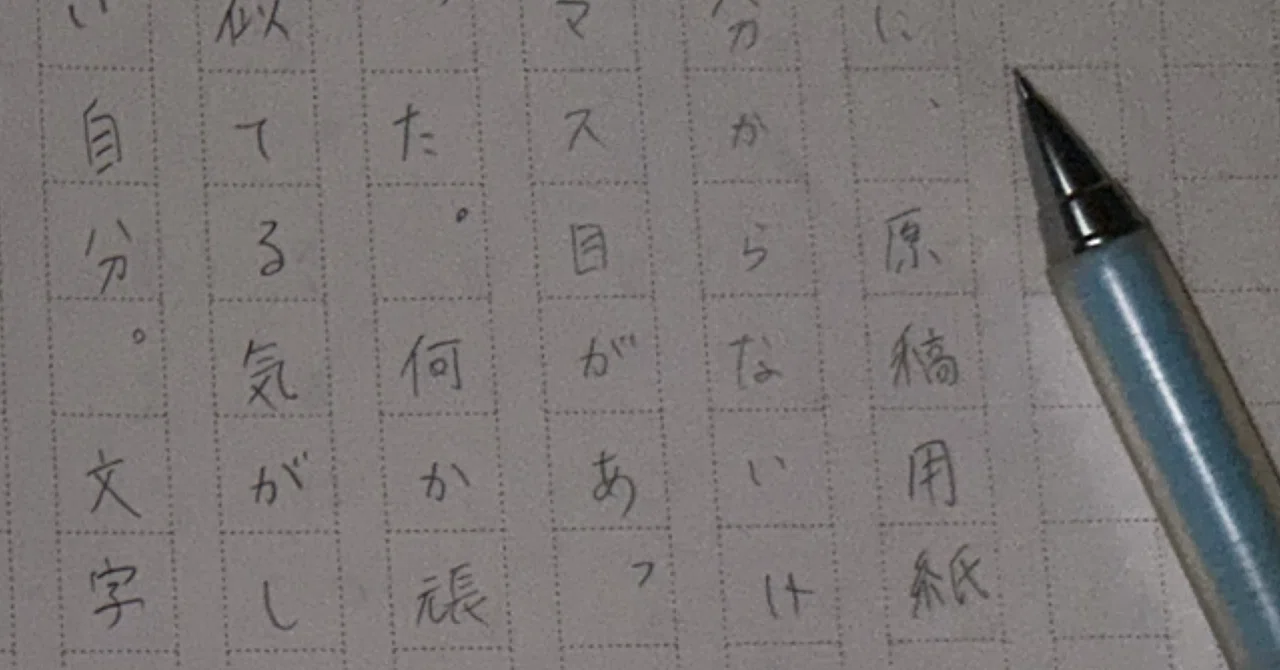 に、原稿用紙
分からないけ
マス目があっ
た。何か張
似てる気がし
い自分。文字